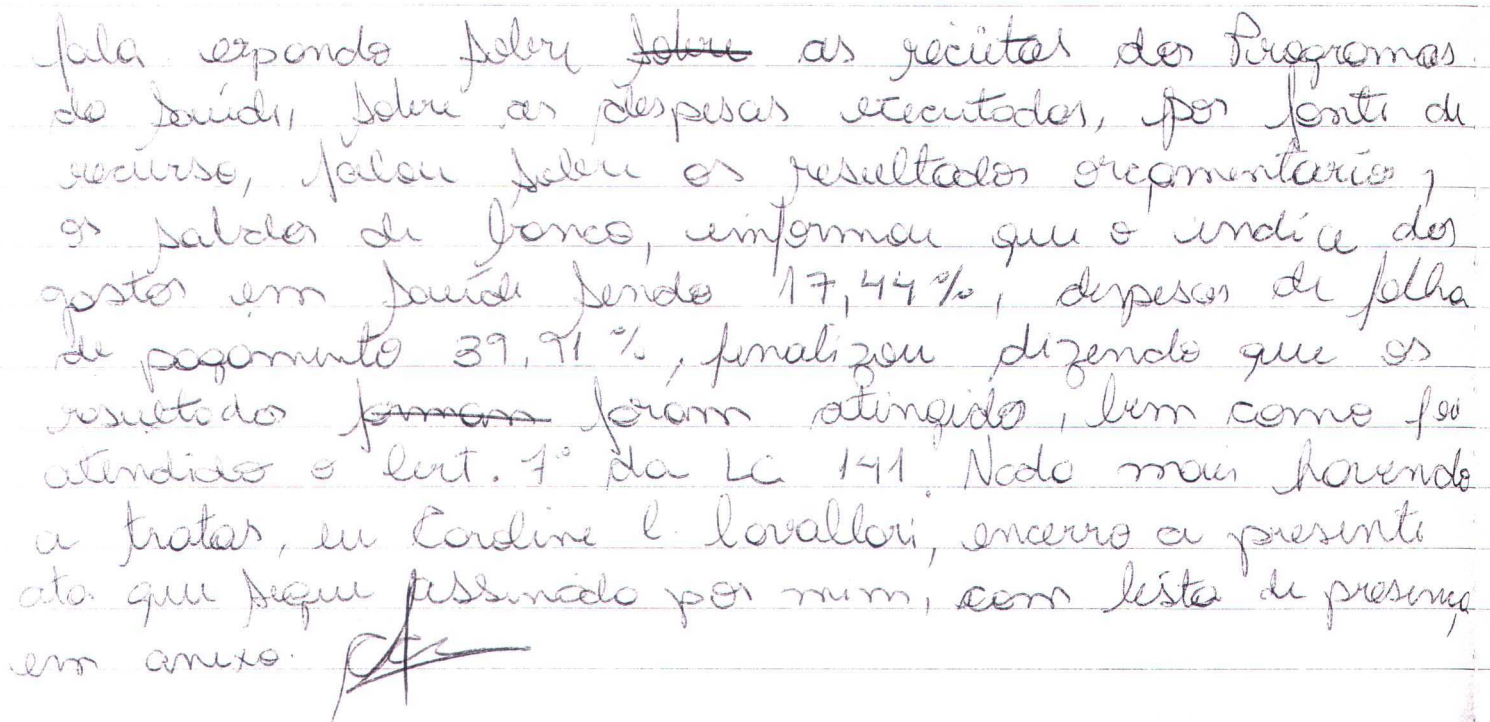 fala expondo sobre sobre as receitas dos Programas
da Saúde, sobre as despesas executadas, por fonte de
recurso, falou sobre os resultados orçamentário,
os saldos de banco, informou que o indice dos
gastos em saúde sendo 17,44%, despesas de folha
de pagamento 39,91%, finalizou dizendo que os
resultado foram atingido, bem como foi
atendido o art. 7º da LC 141. Nada mais havendo
a tratar, eu Caroline C. Cavallari, encerro a presente
ata que segue assinada por mim, com lista de presença
em anexo.